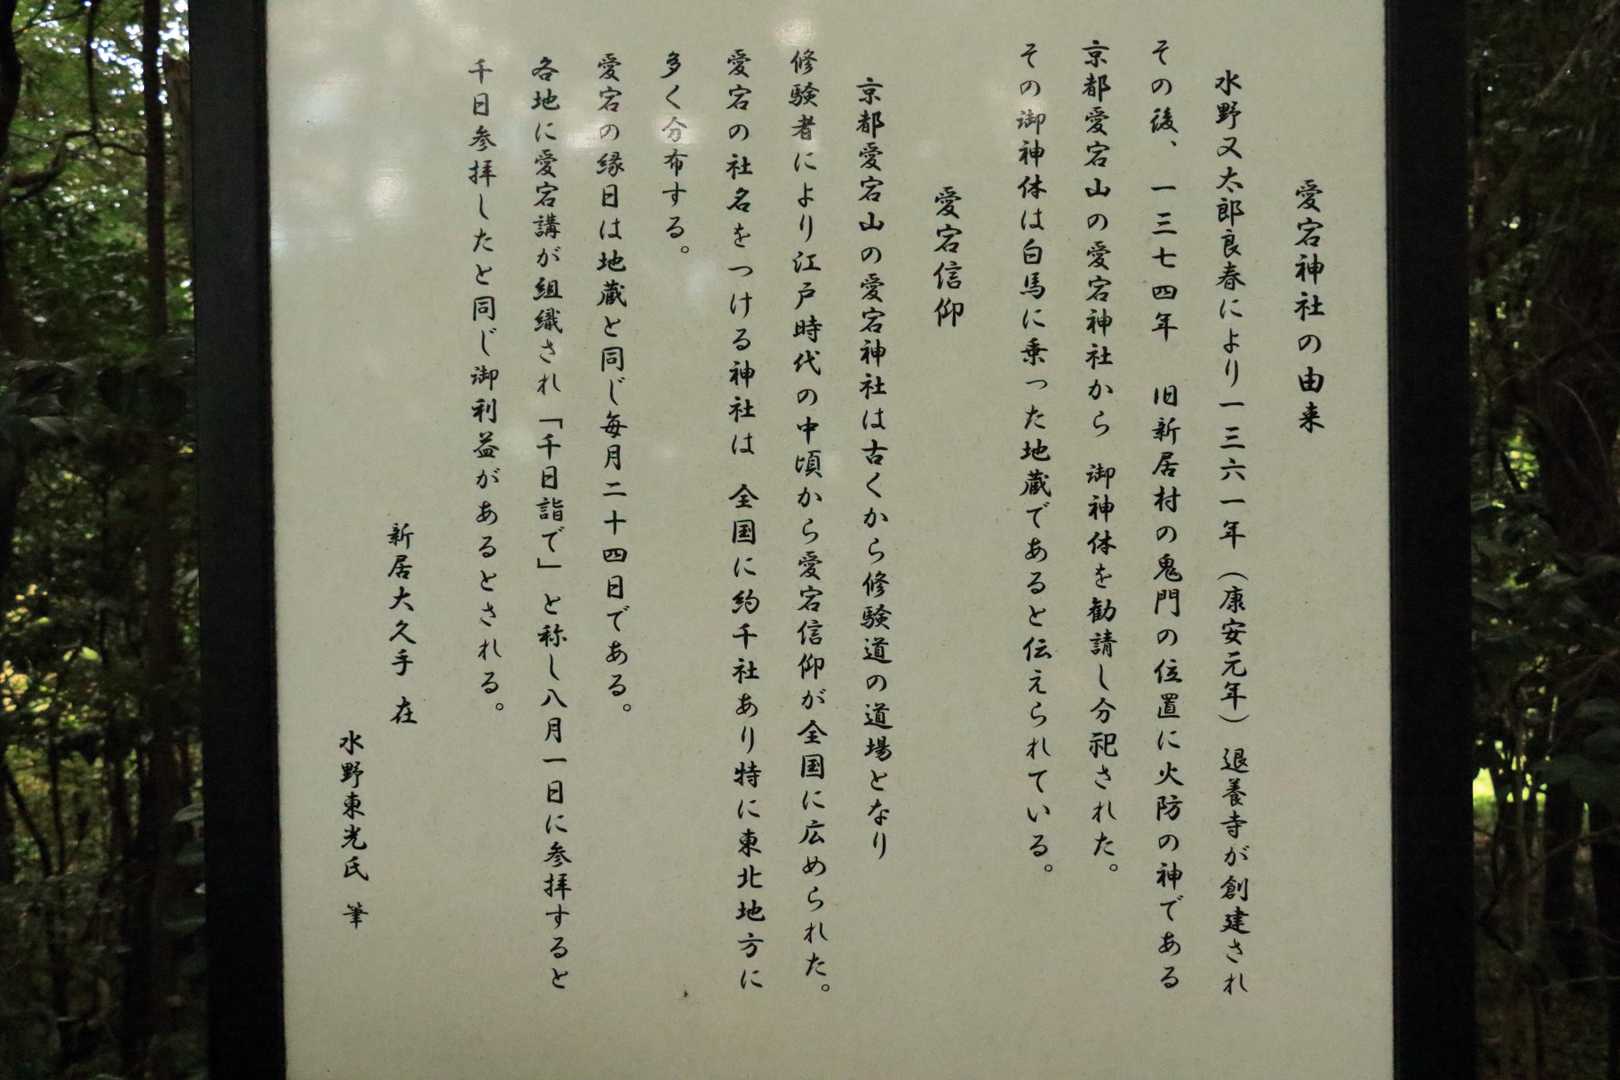 愛宕神社の由来
水野又太郎良春により一三六一年（康安元年）退養寺が創建され
その後、一三七四年　旧新居村の鬼門の位置に火防の神である
京都愛宕山の愛宕神社から　御神体を勧請し分祀された。
その御神体は白馬に乗った地蔵であると伝えられている。
愛宕信仰
京都愛宕山の愛宕神社は古くから修験道の道場となり
修験者により江戸時代の中頃から愛宕信仰が全国に広められた。
愛宕の社名をつける神社は　全国に約千社あり特に東北地方に
多く分布する。
愛宕の縁日は地蔵と同じ毎月二十四日である。
各地に愛宕講が組織され「千日詣で」と称し八月一日に参拝すると
千日参拝したと同じ御利益があるとされる。
新居大久手　在
水野東光氏　筆